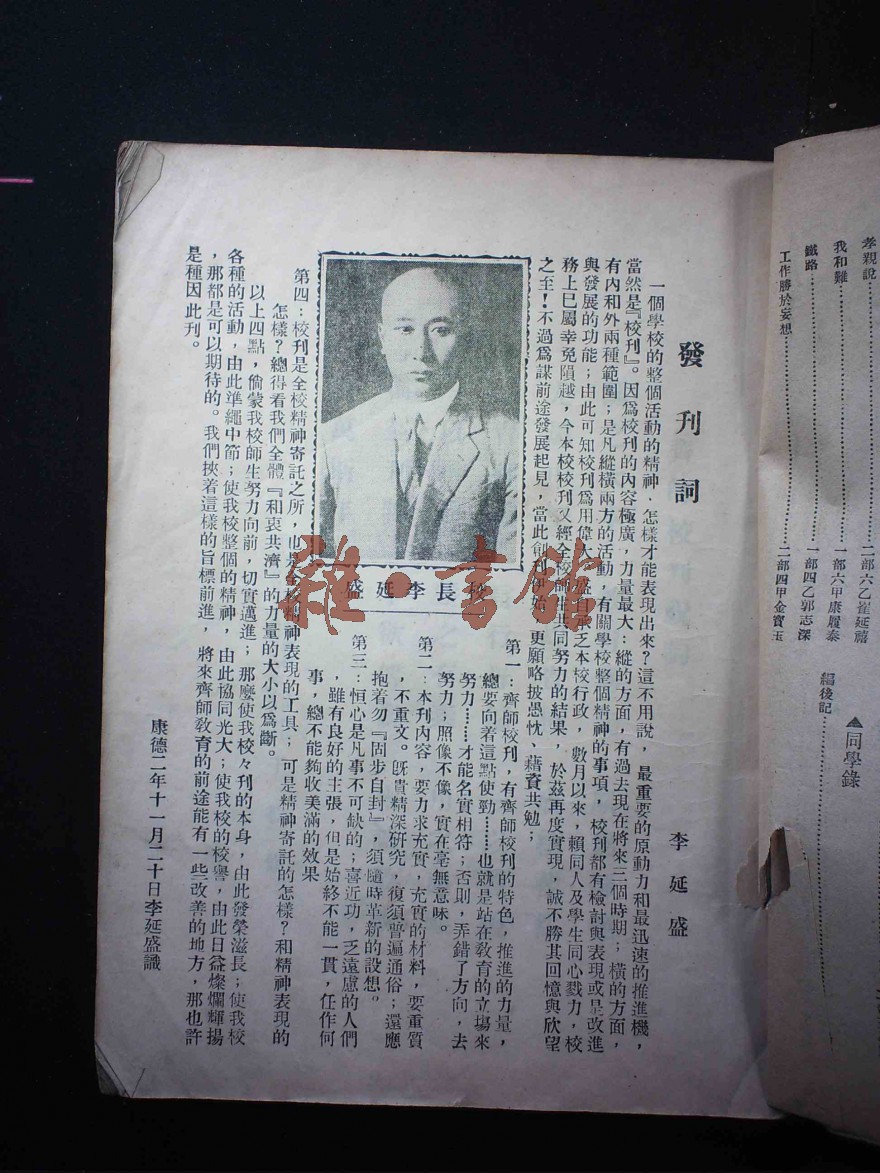 孝親說
我和難
鐵路
工作勝於妄想
二部六乙崔延禧
一部六甲康履泰
一部四乙郭志深
二部四甲金寶玉
編後記
▲同學錄
發刊詞
李延盛
一個學校的整個活動的精神．怎樣才能表現出來？這不用說，最重要的原動力和最迅速的推進機，
當然是『校刊』。因爲校刊的內容極廣，力量最大：縱的方面，有過去現在將來三個時期；橫的方面，
有內和外兩種範圍；是凡縱橫兩方的活動，有關學校整個精神的事項，校刊都有檢討與表現或是改進
與發展的功能；由此可知校刊爲用偉大。盛自承乏本校行政，數月以來，賴同人及學生同心戮力，校
務上已屬幸免隕越，今本校校刊又經全校師生共同努力的結果，於茲再度實現，誠不勝其回憶與欣望
之至！不過爲謀前途發展起見，當此創刊伊始，更願略披愚忱、藉資共勉；
校長李延盛
第一：齊師校刊，有齊師校刊的特色，推進的力量，
總要向着這點使勁……也就是站在教育的立場來
努力……才能名實相符；否則，弄錯了方向，去
努力；照像不像，實在毫無意味。
第二：本刊內容，要力求充實，充實的材料，要重質
，不重文。旣貴精深研究，復須普遍通俗；還應
抱着勿『固步自封』，須隨時革新的設想。
第三：恒心是凡事不可缺的；喜近功，乏遠慮的人們
，雖有良好的主張，但是始終不能一貫，任作何
事，總不能夠收美滿的效果
第四：校刊是全校精神寄託之所，也是全校精神表現的工具；可是精神寄託的怎樣？和精神表現的
怎樣？總得看我們全體『和衷共濟』的力量的大小以爲斷。
以上四點，倘蒙我校師生努力向前，切實邁進；那麼使我校々刊的本身，由此發榮滋長；使我校
各種的活動，由此準繩中節；使我校整個的精神，由此協同光大；使我校的校譽，由此日益燦爛輝揚
，那都是可以期待的。我們挾着這樣的旨標前進，將來齊師教育的前途能有一些改善的地方，那也許
是種因此刊。
康德二年十一月二十日李延盛識
雜·書館